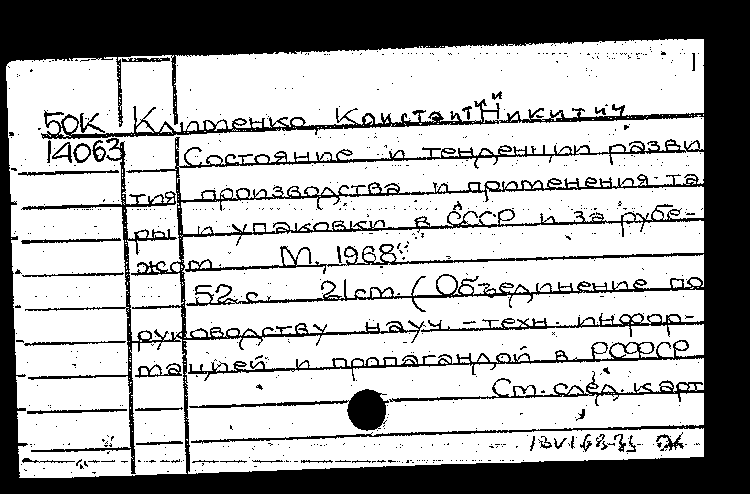 50К Клименко, Константин Никитич
14063 Состояние и тенденции разви
тия производства и применения та
ры и упаковки в СССР и за рубе-
жом. М., 1968.
52 с. 21 см. (Объединение по
руководству науч.-техн. инфор-
мацией и пропагандой в РСФСР
См. след. карт